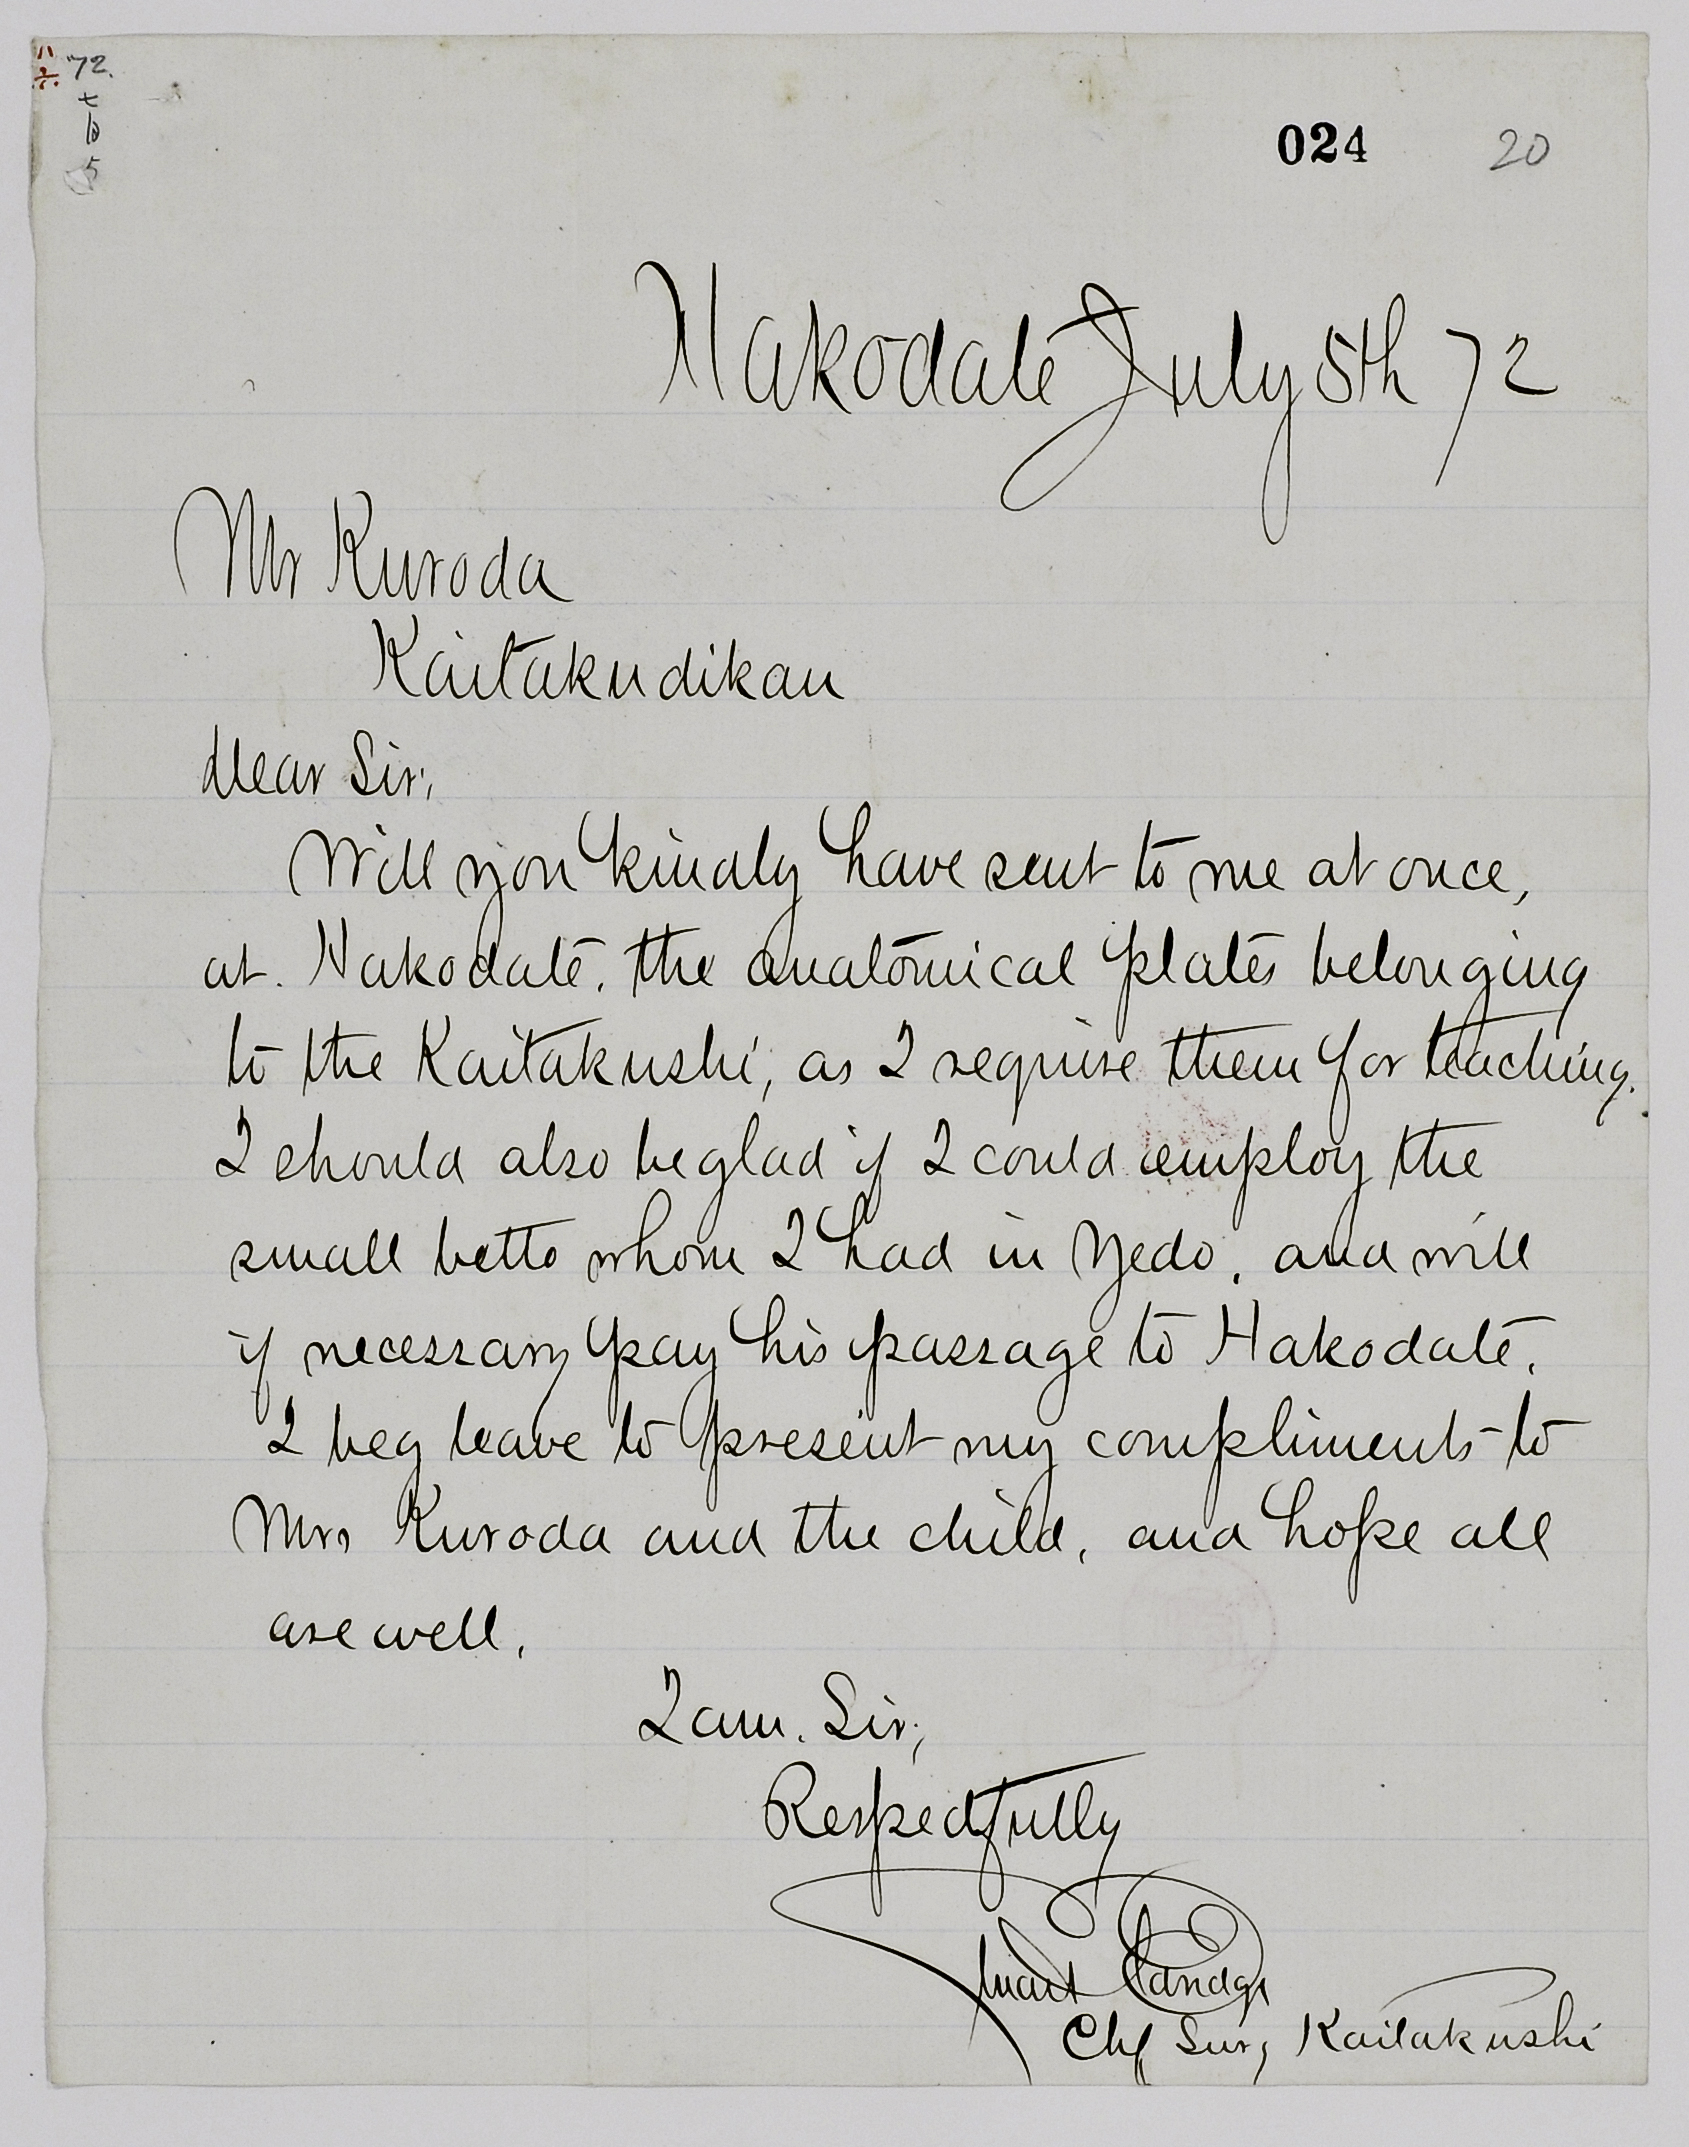 72.
024 20
Hakodate July 5th 72
Mr Kuroda
Kaitakudikau
Dear Sir;
Will you kindly have sent to me at once,
at. Hakodate, the anatomical plates belonging
to the Kaitakushi, as I require them for teaching.
I should also be glad if I could employ the
small betto whom I had in Yedo, and will
if necessary pay his passage to Hakodate,
I beg leave to present my compliments to
Mrs Kuroda and the child, and hope all
are well,
I am. Sir;
Respectfully
Stuart Eldridge
Chf Surg Kaitakushi